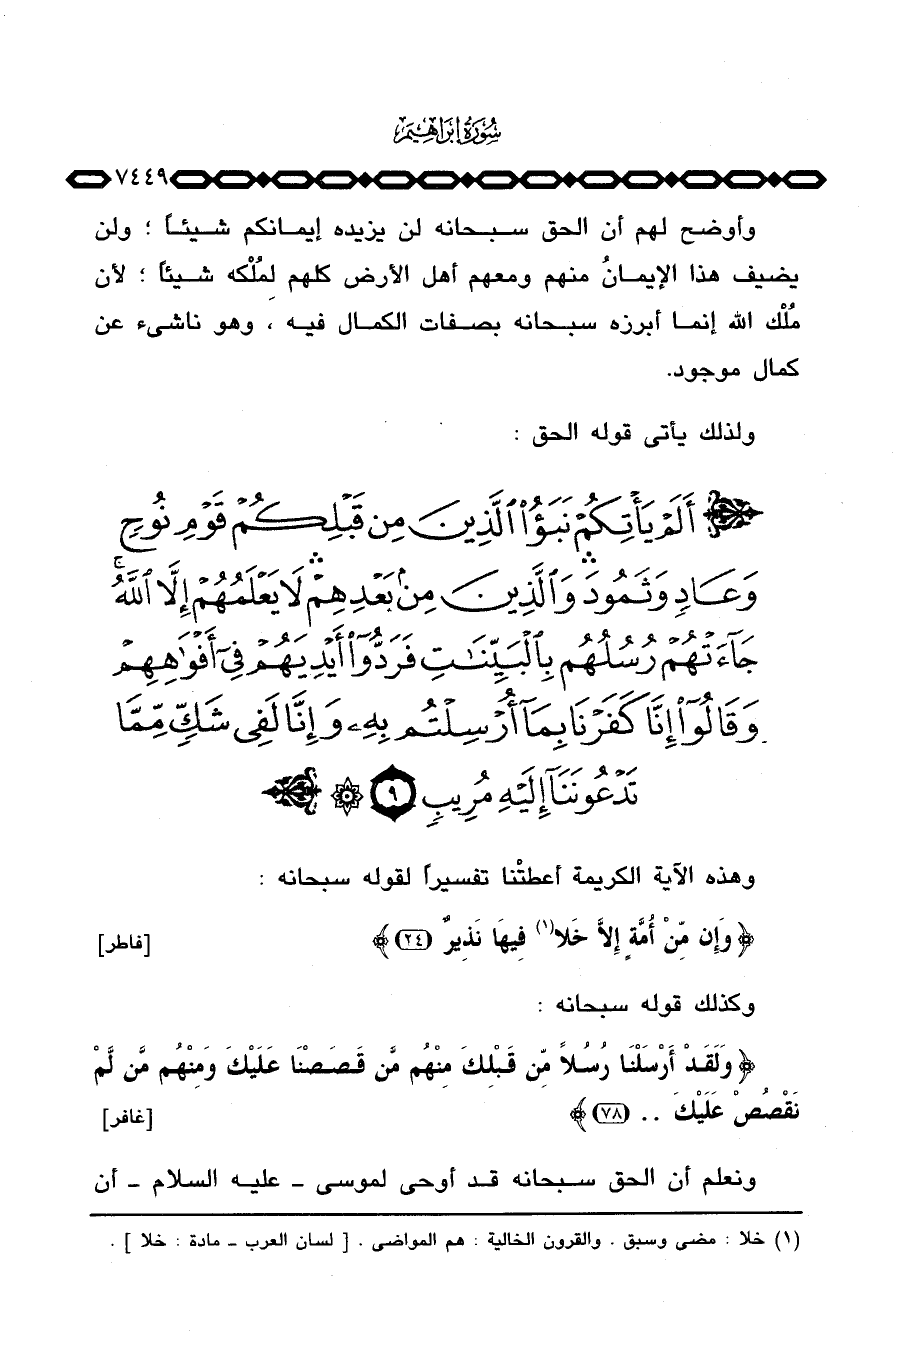 سُورَةُ إِبْرَاهِيمَ
٧٤٤٩
وأوضح لهم أن الحق سبحانه لن يزيده إيمانكم شيئاً ؛ ولن
يضيف هذا الإيمانُ منهم ومعهم أهل الأرض كلهم لمُلْكه شيئاً ؛ لأن
مُلْك الله إنما أبرزه سبحانه بصفات الكمال فيه ، وهو ناشىء عن
كمال موجود.
ولذلك يأتى قوله الحق :
أَلَمْ يَأْتِكُمْ نَبَؤُا۟ ٱلَّذِينَ مِن قَبْلِكُمْ قَوْمِ نُوحٍ
وَعَادٍ وَثَمُودَ ۛ وَٱلَّذِينَ مِنۢ بَعْدِهِمْ ۛ لَا يَعْلَمُهُمْ إِلَّا ٱللَّهُ ۚ
جَآءَتْهُمْ رُسُلُهُم بِٱلْبَيِّنَٰتِ فَرَدُّوٓا۟ أَيْدِيَهُمْ فِىٓ أَفْوَٰهِهِمْ
وَقَالُوٓا۟ إِنَّا كَفَرْنَا بِمَآ أُرْسِلْتُم بِهِۦ وَإِنَّا لَفِى شَكٍّ مِّمَّا
تَدْعُونَنَآ إِلَيْهِ مُرِيبٍ ٩
وهذه الآية الكريمة أعطتْنا تفسيراً لقوله سبحانه :
﴿ وَإِن مِّنْ أُمَّةٍ إِلاَّ خَلا(١) فِيهَا نَذِيرٌ (٢٤) ﴾ [فاطر]
وكذلك قوله سبحانه :
﴿ وَلَقَدْ أَرْسَلْنَا رُسُلاً مِّن قَبْلِكَ مِنْهُم مَّن قَصَصْنَا عَلَيْكَ وَمِنْهُم مَّن لَّمْ
نَقْصُصْ عَلَيْكَ .. (٧٨) ﴾ [غافر]
ونعلم أن الحق سبحانه قد أوحى لموسى ـ عليه السلام ـ أن
(١) خلا : مضى وسبق . والقرون الخالية : هم المواضى . [ لسان العرب ـ مادة : خلا ] .